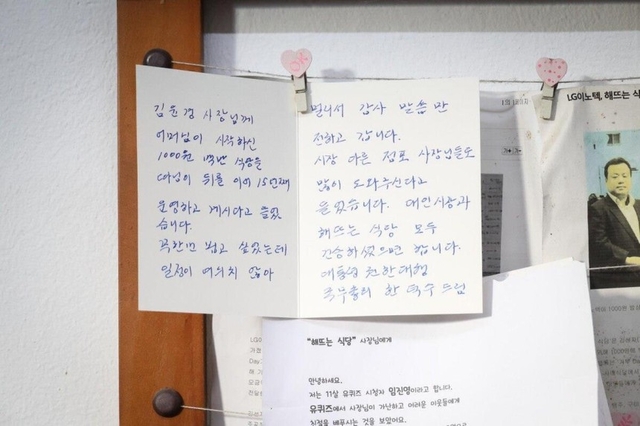 김윤경 사장님께
어머님이 시작하신
1000원 백반 식당을
따님이 뒤를 이어 15년째
운영하고 계시다고 들었
습니다.
꼭한번 뵙고 싶었는데
일정이 여의치 않아
멀리서 감사 말씀만
전하고 갑니다.
시장 다른 점포 사장님들도
많이 도와주신다고
들었습니다. 대인시장과
해뜨는 식당 모두
건승하셨으면 합니다.
대통령 권한대행
국무총리 한덕수 드림
LG이노텍, 해뜨는 식
"해뜨는 식당" 사장님에게
안녕하세요.
저는 11살 유퀴즈 시청자 임진영이라고 합니다.
유퀴즈에서 사장님이 가난하고 어려운 이웃들에게
친절을 베푸시는 것을 보았어요.